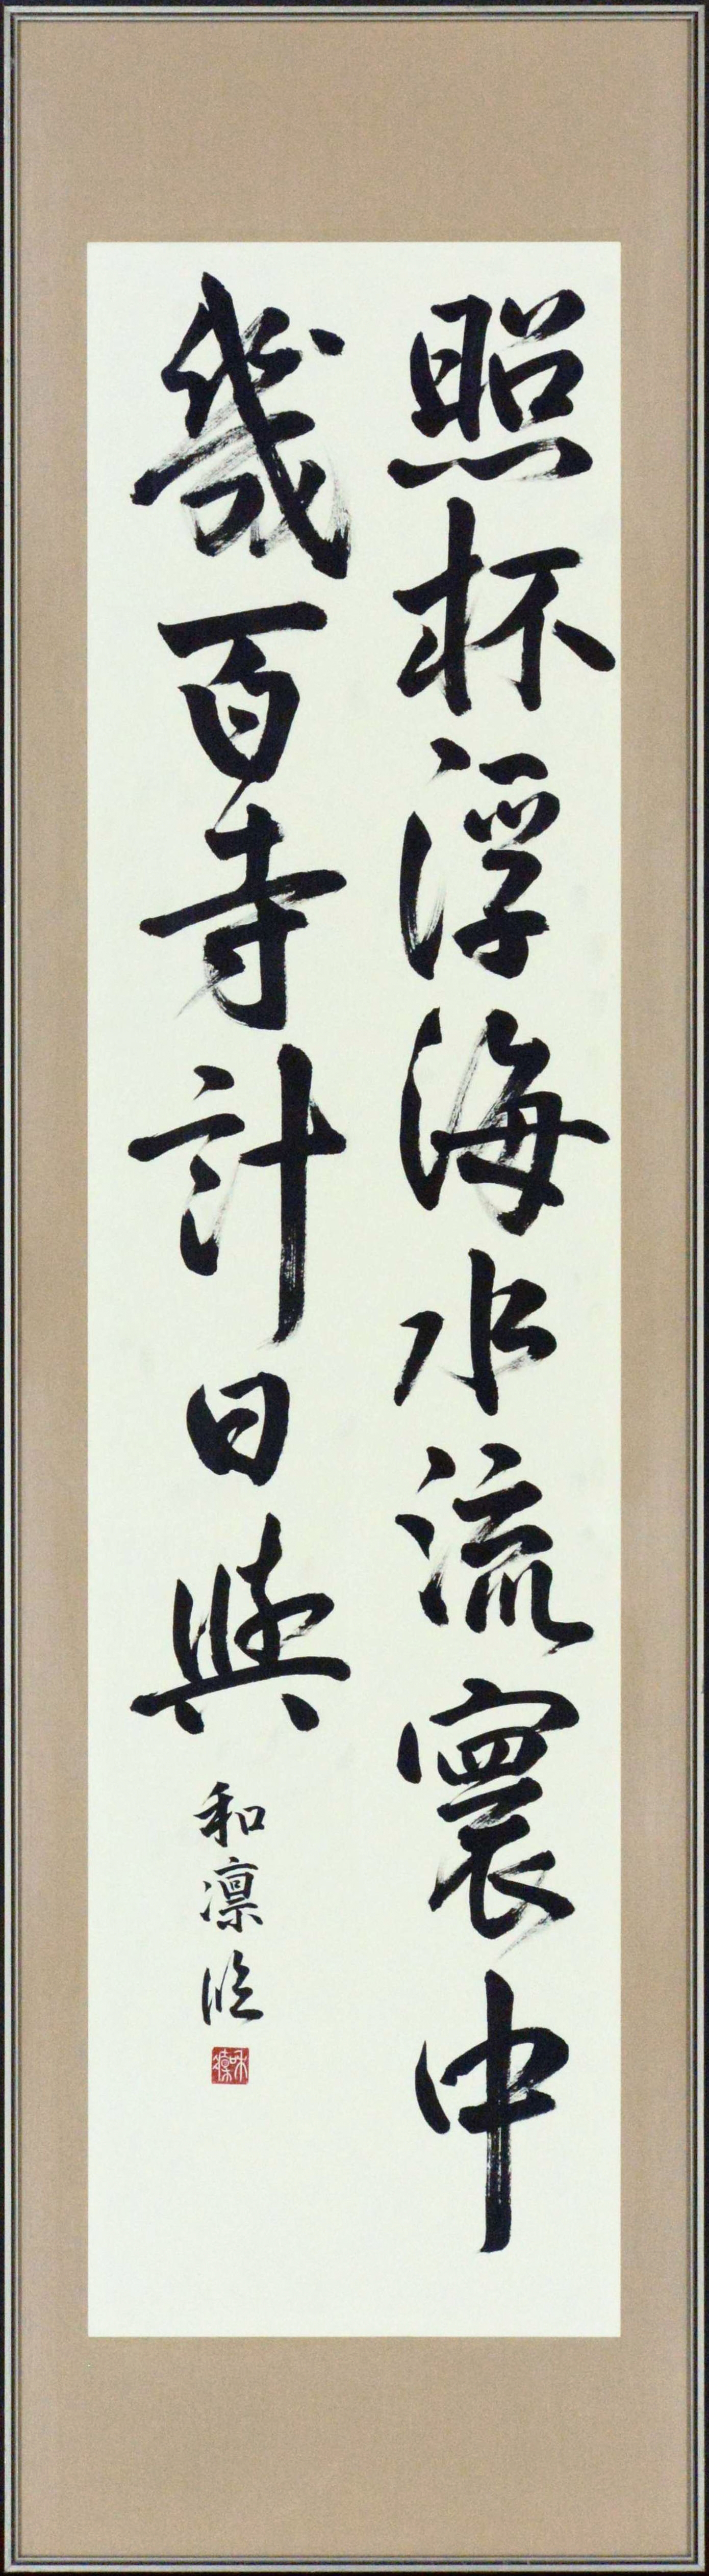 照杯浮海水流寰中
幾百寺計日
和凛臨